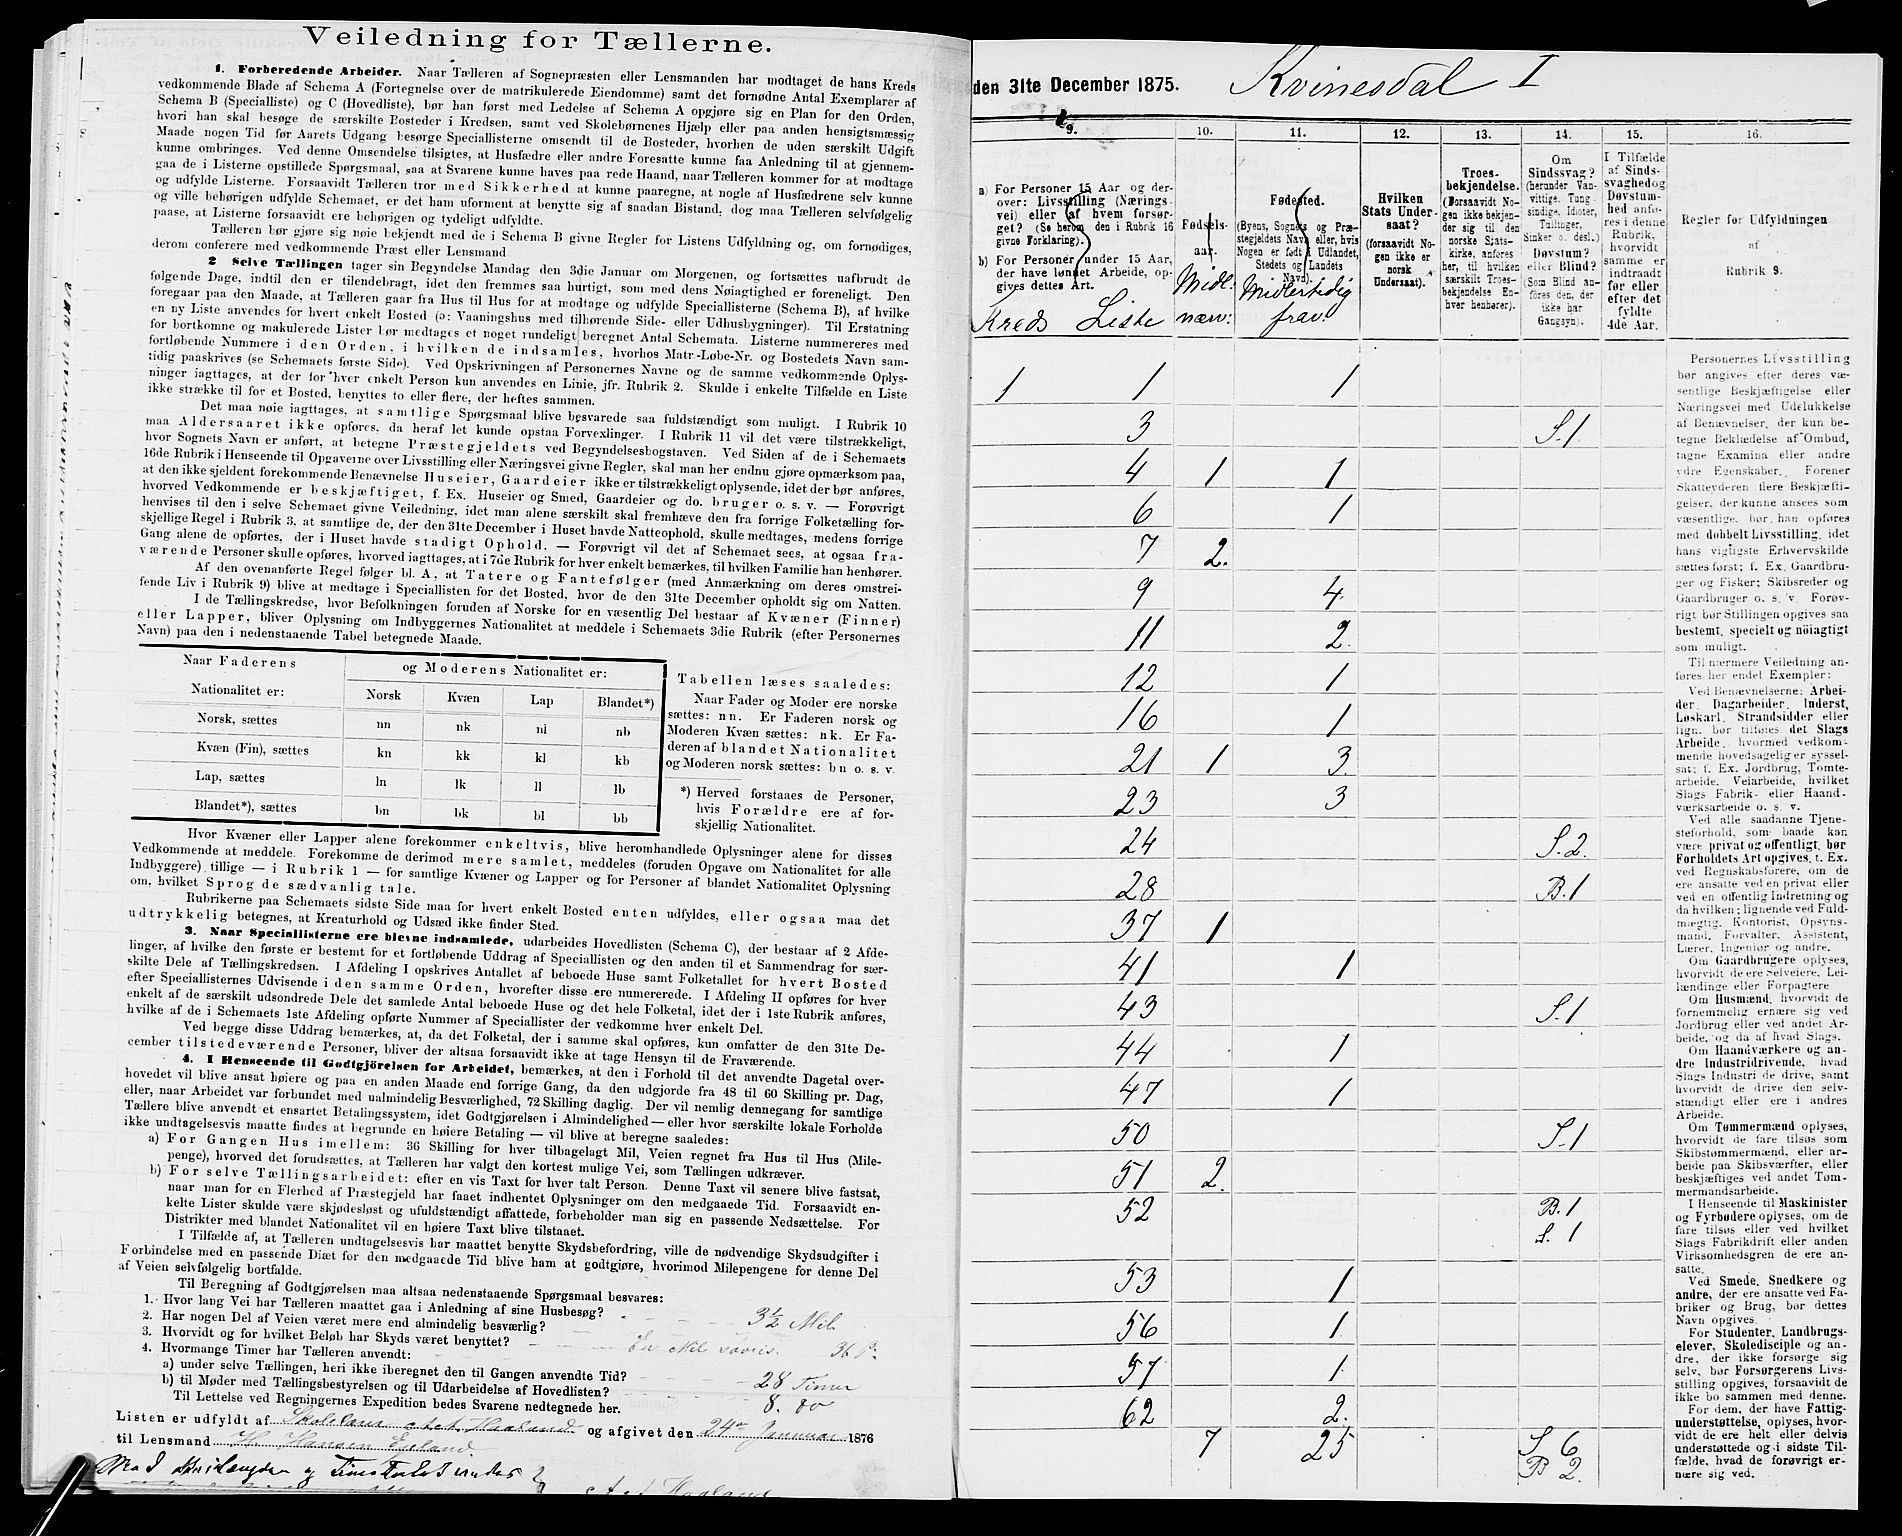 Veiledning for Tællerne.
1. Forberedende Arbeider. Naar Tælleren af Sognepræsten eller Lensmanden har modtaget de hans Kreds
vedkommende Blade af Schema A (Fortegnelse over de matrikulerede Eiendomme) samt det fornødne Antal Exemplarer af
Schema B (Specialliste) og C (Hovedliste), bør han først med Ledelse af Schema A opgjøre sig en Plan for den Orden,
hvori han skal besøge de særskilte Bosteder i Kredsen, samt ved Skolebørnenes Hjælp eller paa anden hensigtsmæssig
Maade nogen Tid før Aarets Udgang besørge Speciallisterne omsendt til de Bosteder, hvorhen de uden særskilt Udgift
kunne ombringes. Ved denne Omsendelse tilsigtes, at Husfædre eller andre Foresatte kunne faa Anledning til at gjennem-
gaa de i Listerne opstillede Spørgsmaal, saa at Svarene kunne haves paa rede Haand, naar Tælleren kommer for at modtage
og udfylde Listerne. Forsaavidt Tælleren tror med Sikkerhed at kunne paaregne, at nogle af Husfædrene selv kunne
og ville behørigen udfylde Schemaet, er det ham uforment at benytte sig af saadan Bistand, dog maa Tælleren selvfølgelig
paase, at Listerne forsaavidt ere behørigen og tydeligt udfyldte.
Tælleren bør gjøre sig nøie bekjendt med de i Schema B givne Regler for Listens Udfyldning og, om fornødiges,
derom conferere med vedkommende Præst eller Lensmand
2 Selve Tællingen tager sin Begyndelse Mandag den 3die Januar om Morgenen, og fortsættes uafbrudt de
følgende Dage, indtil den er tilendebragt, idet den fremmes saa hurtigt, som med dens Nøiagtighed er foreneligt. Den
foregaar paa den Maade, at Tælleren gaar fra Hus til Hus for at modtage og udfylde Speciallisterne (Schema B), af hvilke
en ny Liste anvendes for hvert enkelt Bosted (ɔ: Vaaningshus med tilhørende Side- eller Udhusbygninger). Til Erstatning
for bortkomne og makulerede Lister bør medtages et noget rundeligt beregnet Antal Schemata. Listerne nummereres med
fortløbende Nummere i den Orden, i hvilken de indsamles, hvorhos Matr.-Løbe-Nr. og Bostedets Navn sam-
tidig paaskrives (se Schemaets første Side). Ved Opskrivningen af Personernes Navne og de samme vedkommende Oplys-
ninger iagttages, at der for hver enkelt Person kun anvendes en Linie, jfr. Rubrik 2. Skulde i enkelte Tilfælde en Liste
ikke strække til for et Bosted, benyttes to eller flere, der heftes sammen.
Det maa nøie iagttages, at samtlige Spørgsmaal blive besvarede saa fuldstændigt som muligt. I Rubrik 10
maa Aldersaaret ikke opføres, da heraf let kunde opstaa Forvexlinger. I Rubrik 11 vil det være tilstrækkeligt,
hvor Sognets Navn er anført, at betegne Præstegjeldets ved Begyndelsesbogstaven. Ved Siden af de i Schemaets
16de Rubrik i Henseende til Opgaverne over Livsstilling eller Næringsvei givne Regler, skal man her endnu gjøre opmærksom paa,
at den ikke sjeldent forekommende Benævnelse Huseier, Gaardeier ikke er tilstrækkeligt oplysende, idet der bør anføres,
hvorved Vedkommende er beskjæftiget, f. Ex. Huseier og Smed, Gaardeier og do. bruger o. s. v. — Forøvrigt
henvises til den i selve Schemaet givne Veiledning, idet man alene særskilt skal fremhæve den fra forrige Folketælling for-
skjellige Regel i Rubrik 3, at samtlige de, der den 31te December i Huset havde Natteophold, skulle medtages, medens forrige
Gang alene de opførtes, der i Huset havde stadigt Ophold. — Forøvrigt vil det af Schemaet sees, at ogsaa fra-
værende Personer skulle opføres, hvorved iagttages, at i 7de Rubrik for hver enkelt bemærkes, til hvilken Familie han henhører.
Af den ovenanførte Regel følger bl. A, at Tatere og Fantefølger (med Anmærkning om deres omstrei-
fende Liv i Rubrik 9) blive at medtage i Speciallisten for det Bosted, hvor de den 31te December opholdt sig om Natten.
I de Tællingskredse, hvor Befolkningen foruden af Norske for en væsentlig Del bestaar af Kvæner (Finner)
eller Lapper, bliver Oplysning om Indbyggernes Nationalitet at meddele i Schemaets 3die Rubrik (efter Personernes
Navn) paa den i nedenstaaende Tabel betegnede Maade.
Naar Faderens Nationalitet er: og Moderens Nationalitet er:
Norsk Kvæn Lap Blandet*)
Norsk, sættes nn nk nl nb
Kvæn (Fin), sættes kn kk kl kb
Lap, sættes ln lk ll lb
Blandet*), sættes bn bk bl bb
Tabellen læses saaledes:
Naar Fader og Moder ere norske
sættes: nn. Er Faderen norsk og
Moderen Kvæn sættes: nk. Er Fa-
deren af blandet Nationalitet
og Moderen norsk sættes: bn o. s. v.
*) Herved forstaaes de Personer,
hvis Forældre ere af for-
skjellig Nationalitet.
Hvor Kvæner eller Lapper alene forekommer enkeltvis, blive heromhandlede Oplysninger alene for disses
Vedkommende at meddele. Forekomme de derimod mere samlet, meddeles (foruden Opgave om Nationalitet for alle
Indbyggere) tillige — i Rubrik 1 — for samtlige Kvæner og Lapper og for Personer af blandet Nationalitet Oplysning
om, hvilket Sprog de sædvanlig tale.
Rubrikerne paa Schemaets sidste Side maa for hvert enkelt Bosted enten udfyldes, eller ogsaa maa det
udtrykkelig betegnes, at Kreaturhold og Udsæd ikke finder Sted.
3. Naar Speciallisterne ere blevne indsamlede, udarbeides Hovedlisten (Schema C), der bestaar af 2 Afde-
linger, af hvilke den første er bestemt for et fortløbende Uddrag af Speciallisten og den anden til et Sammendrag for sær-
skilte Dele af Tællingskredsen. I Afdeling I opskrives Antallet af beboede Huse samt Folketallet for hvert Bosted
efter Speciallisternes Udvisende i den samme Orden, hvorefter disse ere nummererede. I Afdeling II opføres for hver
enkelt af de særskilt udsondrede Dele det samlede Antal beboede Huse og det hele Folketal, idet der i 1ste Rubrik anføres,
hvilke af de i Schemaets 1ste Afdeling opførte Nummer af Speciallister der vedkomme hver enkelt Del.
Ved begge disse Uddrag bemærkes, at, da det Folketal, der i samme skal opføres, kun omfatter de den 31te De-
cember tilstedeværende Personer, bliver der altsaa forsaavidt ikke at tage Hensyn til de Fraværende.
4. I Henseende til Godtgjörelsen for Arbeidet, bemærkes, at den i Forhold til det anvendte Dagetal over-
hovedet vil blive ansat høiere og paa en anden Maade end forrige Gang, da den udgjorde fra 48 til 60 Skilling pr. Dag,
eller, naar Arbeidet var forbundet med ualmindelig Besværlighed, 72 Skilling daglig. Der vil nemlig dennegang for samtlige
Tællere blive anvendt et ensartet Betalingssystem, idet Godtgjørelsen i Almindelighed — eller hvor særskilte lokale Forholde
ikke undtagelsesvis maatte findes at begrunde en høiere Betaling — vil blive at beregne saaledes:
a) For Gangen Hus imellem: 36 Skilling for hver tilbagelagt Mil, Veien regnet fra Hus til Hus (Mile-
penge), hvorved det forudsættes, at Tælleren har valgt den kortest mulige Vei, som Tællingen udkræver.
b) For selve Tællingsarbeidet: efter en vis Taxt for hver talt Person. Denne Taxt vil senere blive fastsat,
naar man for en Flerhed af Præstegjeld har faaet indhentet Oplysninger om den medgaaede Tid. Forsaavidt en-
kelte Lister skulde være skjødesløst og ufuldstændigt affattede, forbeholder man sig en passende Nedsættelse. For
Distrikter med blandet Nationalitet vil en høiere Taxt blive tilstaaet.
I Tilfælde af, at Tælleren undtagelsesvis har maattet benytte Skydsbefordring, ville de nødvendige Skydsudgifter i
Forbindelse med en passende Diæt for den medgaaede Tid blive ham at godtgjøre, hvorimod Milepengene for denne Del
af Veien selvfølgelig bortfalde.
Til Beregning af Godtgjørelsen maa altsaa nedenstaaende Spørgsmaal besvares:
1. Hvor lang Vei har Tælleren maattet gaa i Anledning af sine Husbesøg? 3½ Mil
2. Har nogen Del af Veien været mere end almindelig besværlig?
3. Hvorvidt og for hvilket Beløb har Skyds været benyttet? En Mil
4. Hvormange Timer har Tælleren anvendt:
a) under selve Tællingen, heri ikke iberegnet den til Gangen anvendte Tid? 28 Timer
b) til Møder med Tællingsbestyrelsen og til Udarbeidelse af Hovedlisten? 8.
Til Lettelse ved Regningernes Expedition bedes Svarene nedtegnede her.
Listen er udfyldt af Haaland og afgivet den 24de Januar 1876
til Lensmand H. Hansen Egeland
Haaland
den 31te December 1875. Kvinesdal I
9. 10. 11. 12. 13. 14. 15. 16.
a) For Personer 15 Aar og der-
over: Livsstilling (Nærings-
vei) eller af hvem forsør-
get? (Se herom den i Rubrik 16
givne Forklaring).
b) For Personer under 15 Aar,
der have lønnet Arbeide, op-
gives dettes Art.
Kreds Liste
Fødsels-
aar.
Midl.
nærv:
Fødested.
(Byens, Sognets og Præ-
stegjeldets Navn eller, hvis
Nogen er født i Udlandet,
Stedets og Landets
Navn).
Midlertidig
frav:
Hvilken
Stats Under-
saat?
(forsaavidt No-
gen ikke er
norsk
Undersaat).
Troes-
bekjendelse.
(Forsaavidt No-
gen ikke bekjen-
der sig til den
norske Stats-
kirke, anføres
her, til hvilken
særskilt Troes-
bekjendelse En-
hver henhører).
Om
Sindssvag?
(herunder Van-
vittige, Tung-
sindige, Idioter,
Tullinger,
Sinker o. desl.)
Døvstum?
eller Blind?
(Som Blind an-
føres den, der
ikke har
Gangsyn).
I Tilfælde
af Sinds-
svaghed og
Døvstum-
hed anfø-
res i denne
Rubrik,
hvorvidt
samme er
indtraadt
før eller
efter det
fyldte
4de Aar.
Regler for Udfyldningen
af
Rubrik 9.
1 1 1
3 S.1
4 1 1
6 1
7 2.
9 4.
11 2.
12 1
16 1
21 1 3.
23 3
24 S.2.
28 B.1
37 1
41 1
43 S.1
44 1
47 1
50 S.1
51 2.
52 B.1
S.1
53 1
56 1.
57 1.
62 2.
7 25 S 6
B 2.
Personernes Livsstilling
bør angives efter deres væ-
sentlige Beskjæftigelse eller
Næringsvei med Udelukkelse
af Benævnelser, der kun be-
tegne Beklædelse af Ombud,
tagne Examina eller andre
ydre Egenskaber. Forener
Skatteyderen flere Beskjæfti-
gelser, der kunne ansees som
væsentlige, bør han opføres
med dobbelt Livsstilling, idet
hans vigtigste Erhvervskilde
sættes først; f. Ex. Gaardbru-
ger og Fisker; Skibsreder og
Gaardbruger o. s. v. Forøv-
rigt bør Stillingen opgives saa
bestemt, specielt og nöiagtigt
som muligt.
Til nærmere Veiledning an-
føres her endel Exempler:
Ved Benævnelserne: Arbei-
der, Dagarbeider, Inderst,
Løskarl, Strandsidder eller
lign. bør tilføies det Slags
Arbeide, hvormed vedkom-
mende hovedsagelig er syssel-
sat; f. Ex. Jordbrug, Tømte-
arbeide, Veiarbeide, hvilket
Slags Fabrik- eller Haand-
værksarbeide o. s. v.
Ved alle saadanne Tjene-
steforhold, som baade kan
være privat og offentligt, bør
Forholdets Art opgives, t. Ex.
ved Regnskabsførere, om de
ere ansatte ved en privat eller
ved en offentlig Indretning og
da hvilken; lignende ved Fuld-
mægtig, Kontorist, Opsyns-
mand, Forvalter, Assistent,
Lærer, Ingeniør og andre.
Om Gaardbrugere oplyses,
hvorvidt de ere Selveiere, Lei-
lændinge eller Forpagtere
Om Husmænd, hvorvidt de
fornemmelig ernære sig ved
Jordbrug eller ved andet Ar-
beide, og da af hvad Slags.
Om Haandværkere og an-
dre Industridrivende, hvad
Slags Industri de drive, samt
hvorvidt de drive den selv-
stændigt eller ere i andres
Arbeide.
Om Tømmermænd oplyses,
hvorvidt de fare tilsøs som
Skibstømmermænd, eller ar-
beide paa Skibsværfter, eller
beskjæftiges ved andet Tøm-
mermandsarbeide.
I Henseende til Maskinister
og Fyrbødere oplyses, om de
fare tilsøs eller ved hvilket
Slags Fabrikdrift eller anden
Virksomhedsgren de ere an-
satte.
Ved Smede, Snedkere og
andre, der ere ansatte ved Fa-
briker og Brug, bør dettes
Navn opgives.
For Studenter, Landbrugs-
elever, Skoledisciple og an-
dre, der ikke forsørge sig
selv, bør Forsørgerens Livs-
stilling opgives, forsaavidt de
ikke bo sammen med denne.
For dem, der have Fattig-
understøttelse, oplyses, hvor-
vidt de ere helt eller delvis
understøttede og i sidste Til-
fælde, hvad de forøvrigt er-
nære sig ved.